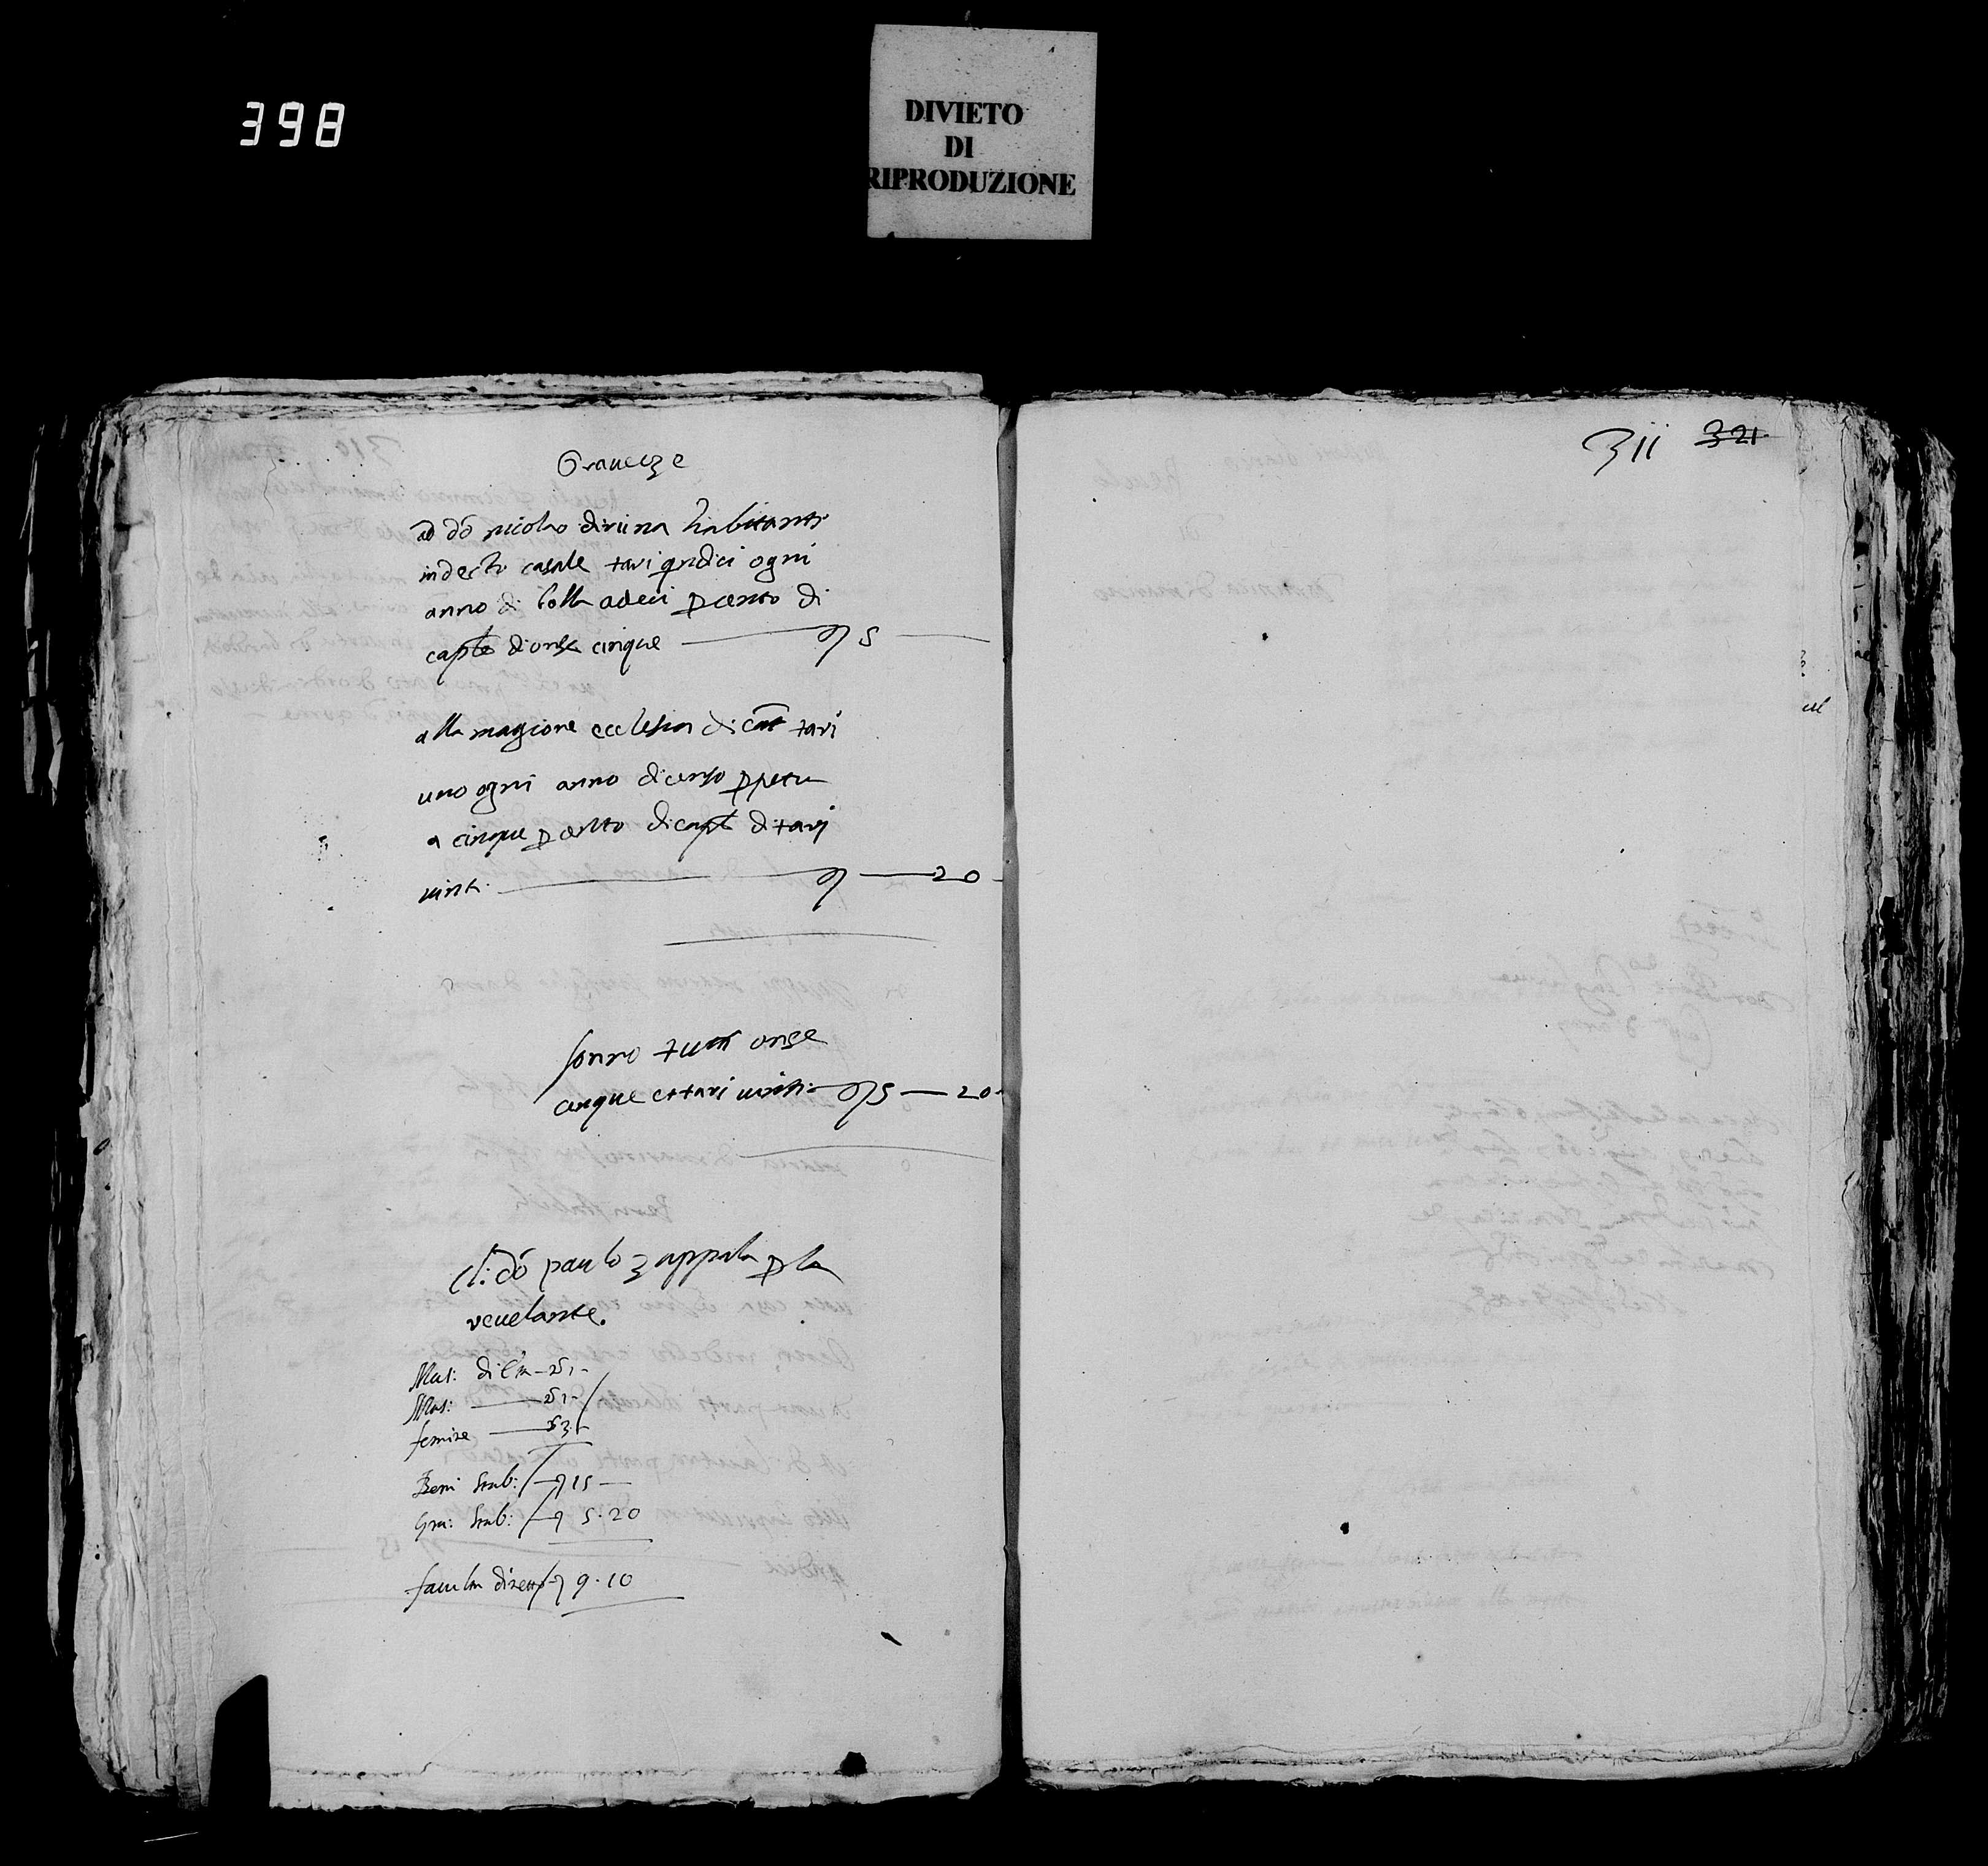 398
DIVIETO
DI
RIPRODUZIONE
Gravezze
ad dō nicolao diviina habitanti
in decto casale tari qndici ogni
anno di bolla a deci p cento di
caple d'onze cinque ⁊ 5
alla magione ecclesia di cat tari
uno ogni anno di censo ppetu
a cinque p cento di caple di tarj
vinti ⁊ 20
sonno tutti onze
cinque et tari vinti ⁊ 5 — 20
Cl: dō paulo zappala p la
revelante.
Mas: di
Mas:
femine
Beni stab: ⁊ 15 —
Gra: stab: ⁊ 5 . 20
⁊ 9 . 10
311 321